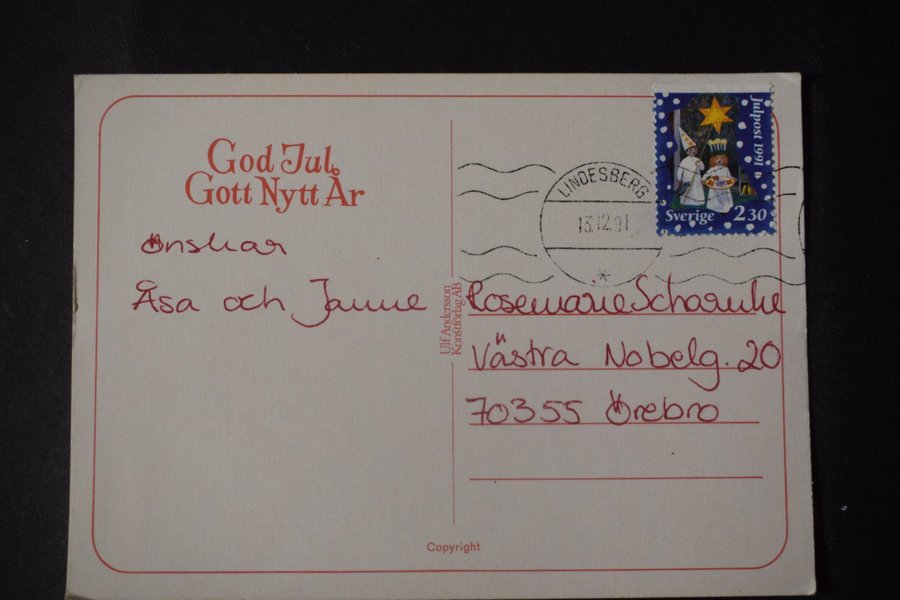 God Jul
Gott Nytt År
Önskar
Åsa och Janne
Ulf Andersson
Konstförlag AB
Julpost 1991
Sverige 2 30
LINDESBERG
13.12.91
Rosemarie Scharnke
Västra Nobelg. 20
70355 Örebro
Copyright